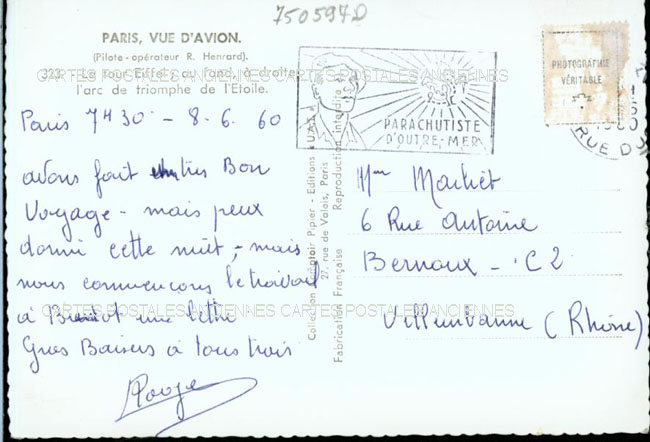 750597D
PARIS, VUE D'AVION.
(Pilote-opérateur R. Henrard).
323. - La tour Eiffel ; au fond, à droite
l'arc de triomphe de l'Etoile.
CARTES POSTALES ANCIENNES CARTES POSTALES ANCIENNES
PARACHUTISTE
D'OUTRE-MER
PHOTOGRAPHIE
VÉRITABLE
RUE DU
Paris 7H30 - 8.6.60
avons fait très Bon
Voyage - mais peux
dormi cette nuit, - mais
nous commençons le travail
à une lettre
Gros Baisers à tous trois
Collection Comptoir Pipier - Editions "U.A.T."
27, rue de Valois, Paris
Fabrication Française Reproduction interdite
Mme
6 Rue Antoine
Bernoux - C2
Villeurbanne (Rhône)
CARTES POSTALES ANCIENNES CARTES POSTALES ANCIENNES